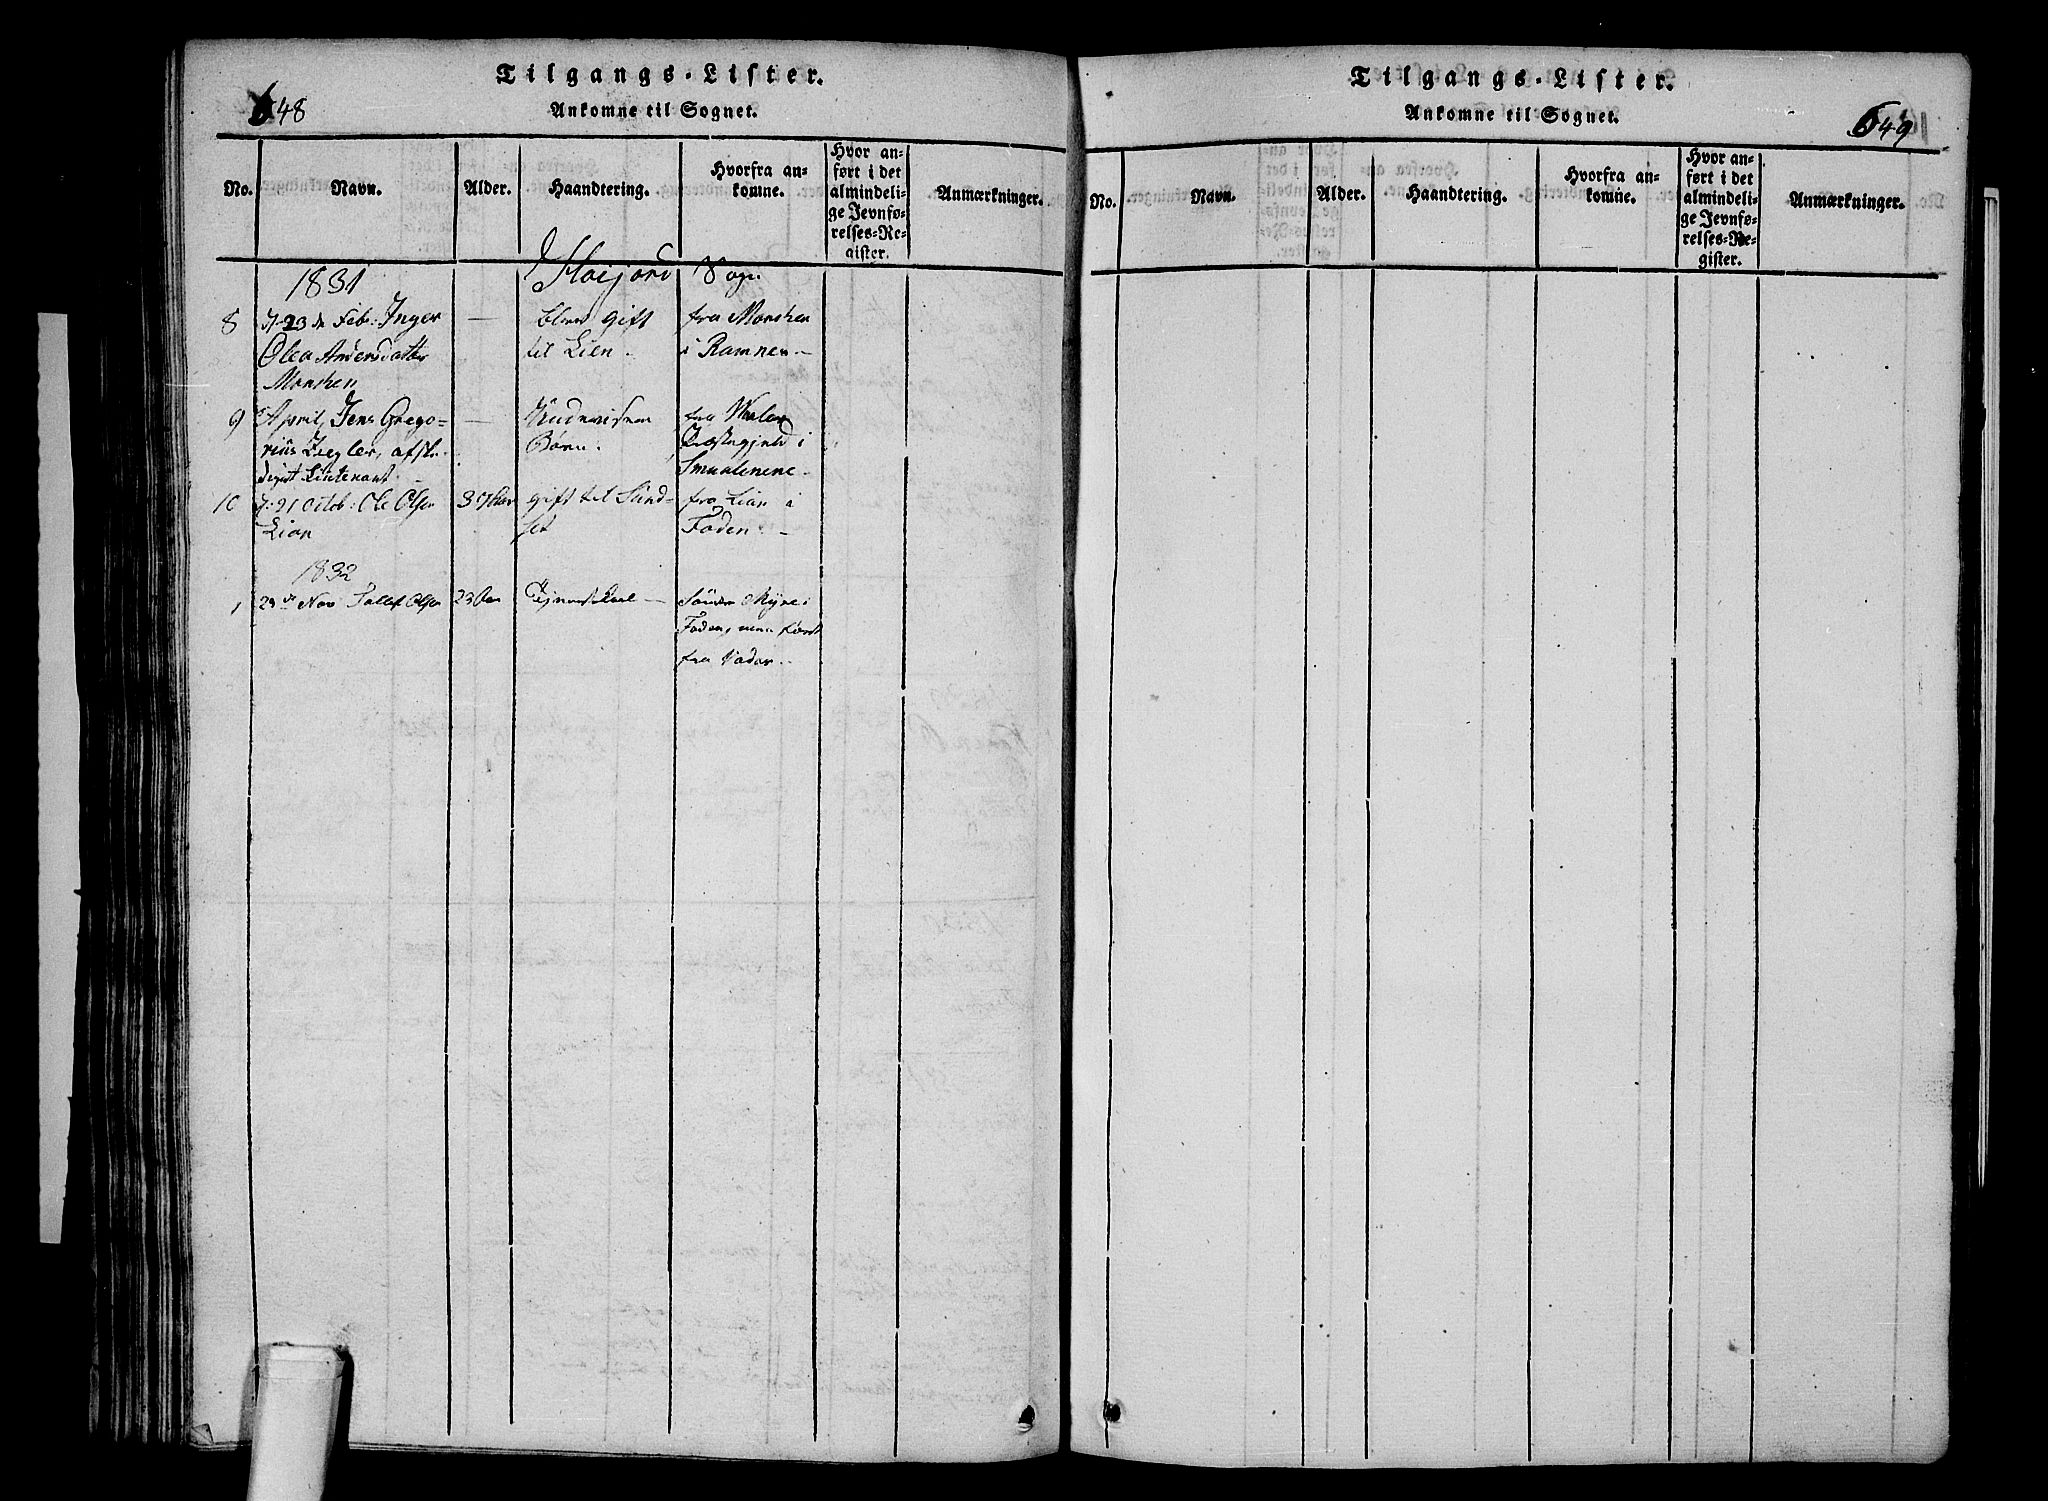 648
Tilgangs-Lister.
Ankomne til Sognet.
No.
Navn.
Alder.
Haandtering.
Hvorfra an-
komne.
Hvor an-
ført i det
almindeli-
ge Jevnfø-
relses-Re-
gister.
Anmærkninger.
Høijord Sogn
1831
8
d. 23 de Feb: Inger
Olea Andersdatter
—
bleven gift
til Lien.
fra
i Ramnes
9
April, Jens Grego-
rius Ziegler, afske-
diget Lieutenant.
—
Underviser
Børn.
fra
Præstegjeld i
Smaalenene
10
d. 21 Octob: Ole Olsen
Lian
gift til Sund-
set
fra Lian i
Foden.
1832
1
29de Nov Olsen
23 Aar
Tjenestekarl —
Søndre Myre i
Foden,
fra
649
Tilgangs-Lister.
Ankomne til Sognet.
No.
Navn.
Alder.
Haandtering.
Hvorfra an-
komne.
Hvor an-
ført i det
almindeli-
ge Jevnfø-
relses-Re-
gister.
Anmærkninger.